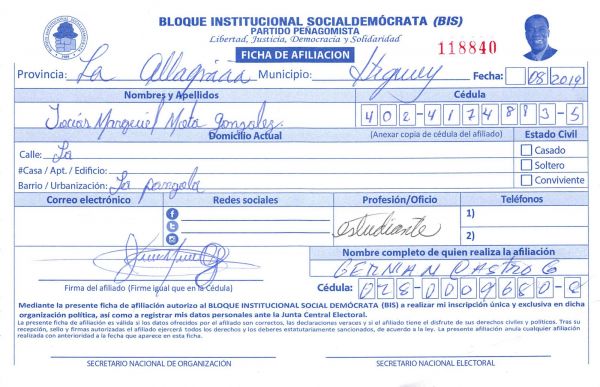 BLOQUE INSTITUCIONAL SOCIALDEMÓCRATA (BIS)
PARTIDO PEÑAGOMISTA
Libertad, Justicia, Democracia y Solidaridad
FICHA DE AFILIACION
118840
Provincia: La Altagracia Municipio: Higuey Fecha: 08 2019
Nombres y Apellidos Cédula
Mota Gonzalez 402-4174883-5
Domicilio Actual (Anexar copia de cédula del afiliado) Estado Civil
Calle: La Casado
#Casa / Apt. / Edificio: Soltero
Barrio / Urbanización: La pangola Conviviente
Correo electrónico Redes sociales Profesión/Oficio Teléfonos
estudiante 1)
2)
Nombre completo de quien realiza la afiliación
GERMAN CASTRO G
Firma del afiliado (Firme igual que en la Cédula) Cédula: 028-0009680-8
Mediante la presente ficha de afiliación autorizo al BLOQUE INSTITUCIONAL SOCIAL DEMÓCRATA (BIS) a realizar mi inscripción única y exclusiva en dicha
organización política, así como a registrar mis datos personales ante la Junta Central Electoral.
La presente ficha de afiliación es válida si los datos ofrecidos por el afiliado son correctos, las declaraciones veraces y si el afiliado tiene el disfrute de sus derechos civiles y políticos. Tras su
recepción, sello y firmas autorizadas el afiliado ejercerá todos los derechos y los deberes estatutariamente sancionados, de acuerdo a la ley. La presente afiliación anula cualquier afiliación
realizada con anterioridad a la fecha que aparece en esta ficha.
SECRETARIO NACIONAL DE ORGANIZACIÓN SECRETARIO NACIONAL ELECTORAL